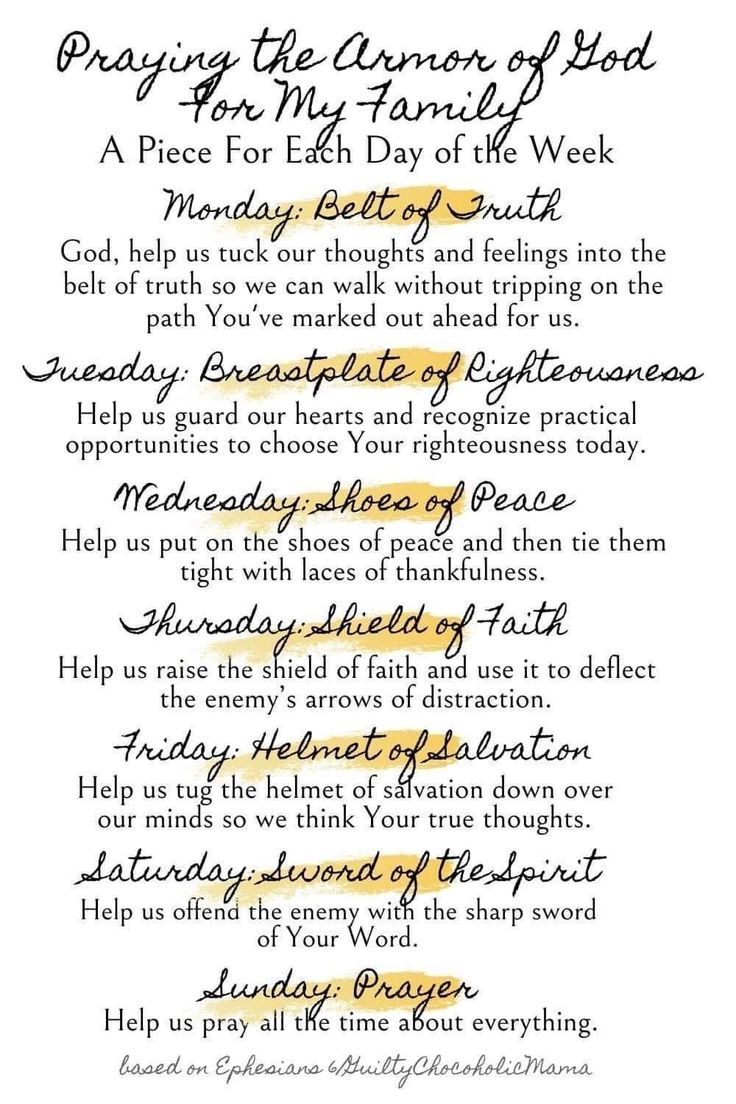 Praying the Armor of God
For My Family
A Piece For Each Day of the Week
Monday: Belt of Truth
God, help us tuck our thoughts and feelings into the
belt of truth so we can walk without tripping on the
path You've marked out ahead for us.
Tuesday: Breastplate of Righteousness
Help us guard our hearts and recognize practical
opportunities to choose Your righteousness today.
Wednesday: Shoes of Peace
Help us put on the shoes of peace and then tie them
tight with laces of thankfulness.
Thursday: Shield of Faith
Help us raise the shield of faith and use it to deflect
the enemy's arrows of distraction.
Friday: Helmet of Salvation
Help us tug the helmet of salvation down over
our minds so we think Your true thoughts.
Saturday: Sword of the Spirit
Help us offend the enemy with the sharp sword
of Your Word.
Sunday: Prayer
Help us pray all the time about everything.
based on Ephesians 6/GuiltyChocoholicMama